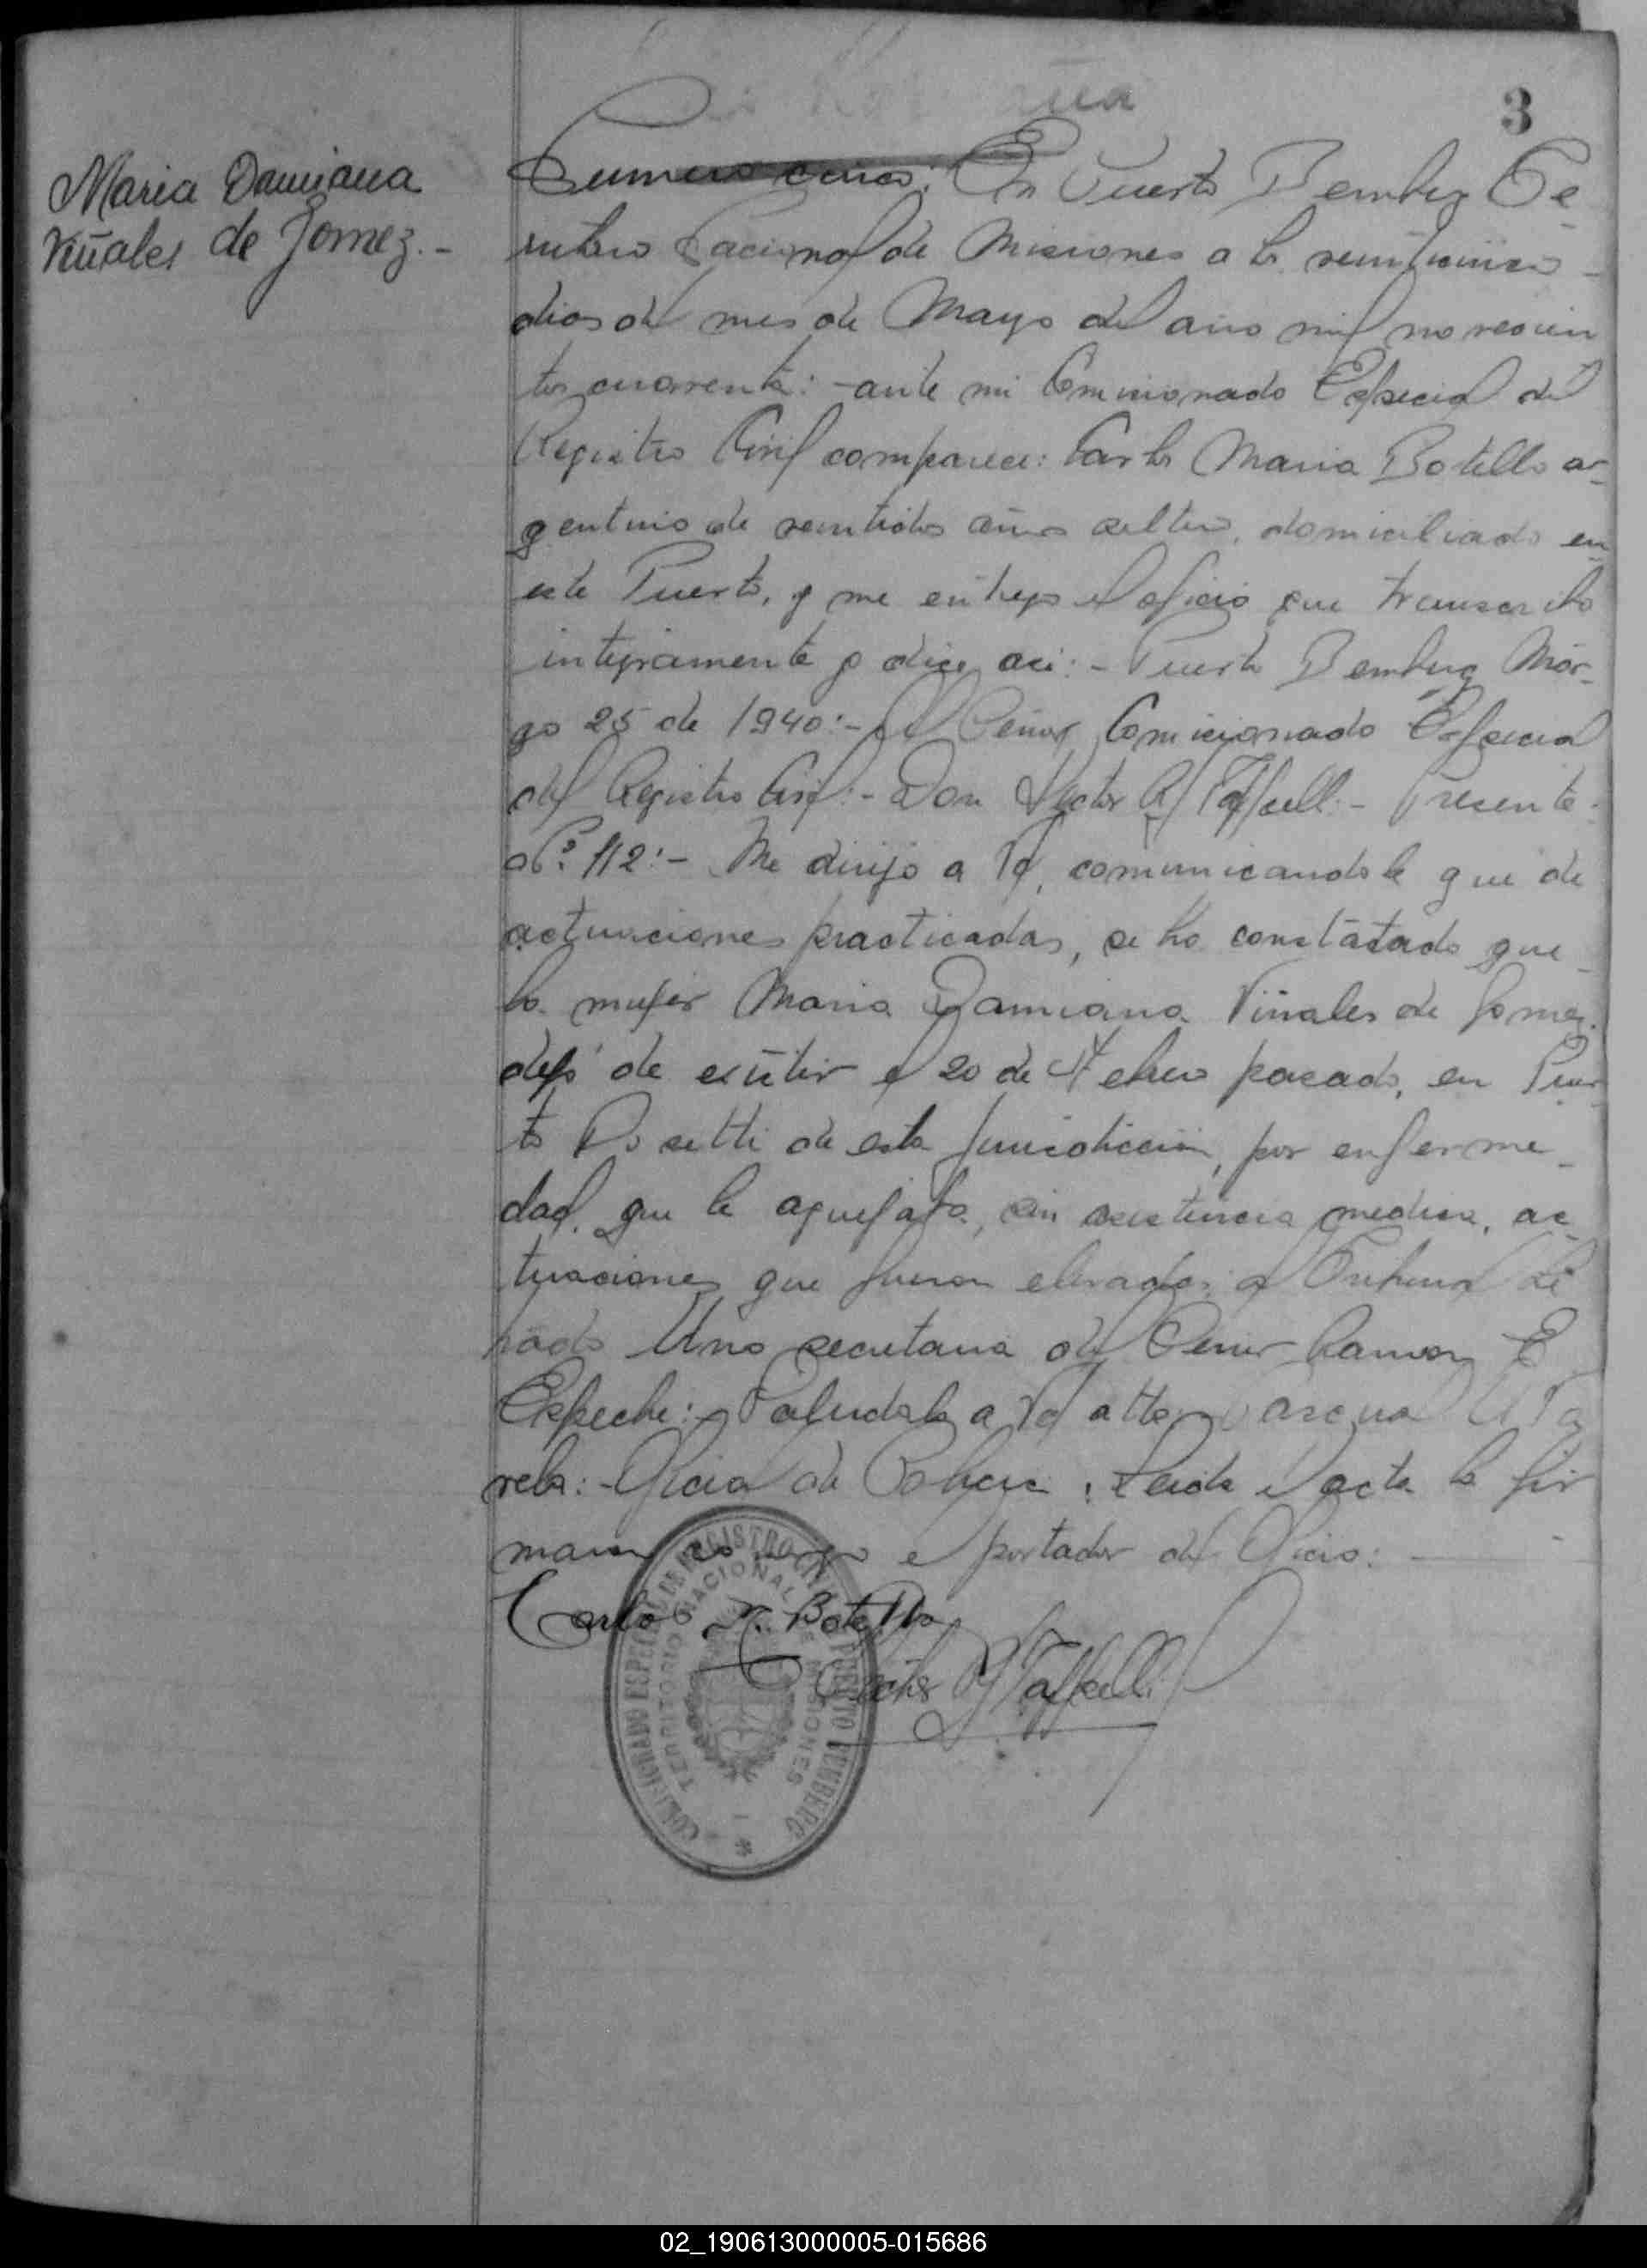 3
Maria Damiana
Viñales de Gomez.-
Numero cinco: En Puerto Bemberg Te-
rritorio Nacional de Misiones a los veinticinco
dias del mes de Mayo del año mil novecien
tos cuarenta: -ante mi Comicionado Especial del
Registro Civil comparece: Carlos Maria Botello ar-
gentino de veintidos años soltero, domiciliado en
este Puerto, y me entrego el oficio que transcribo
integramente y dice asi:- Puerto Bemberg Mar-
zo 25 de 1940:- Al Señor Comicionado Especial
del Registro Civil:- Don Hector Taffarelli:- Presente-
Nº 112:- Me dirijo a Vd, comunicandole que de
actuaciones practicadas, se ha constatado que
la mujer Maria Damiana Viñales de Gomez
dejó de existir el 20 de Febrero pasado, en Puer
to Rosetti de esta Jurisdiccion, por enferme-
dad, que la aquejaba, sin asistencia medica, ac
tuaciones que fueron elevadas al Tribunal Le
trado Uno secretaria del Señor Ramon E
Espeche:- Saludale a Vd atte Pascual
Oficial de Policia: Leida el acta la fir
maron conmigo el portador del Oficio:
Carlos M. Botello
COMICIONADO ESPECIAL DE REGISTRO CIVIL PUERTO BEMBERG
TERRITORIO NACIONAL DE MISIONES
02_190613000005-015686